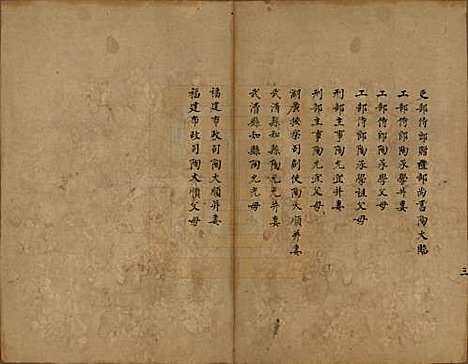 吏部侍郎贈禮部尚書陶大臨
工部侍郎陶承學并妻
工部侍郎陶承學父母
工部侍郎陶承學祖父母
刑部主事陶允宜并妻
刑部主事陶允宜父母
湖廣按察司副使陶大順并妻
武清縣知縣陶允光并妻
武清縣知縣陶允光母
福建布政司陶大順并妻
福建布政司陶大順父母
三